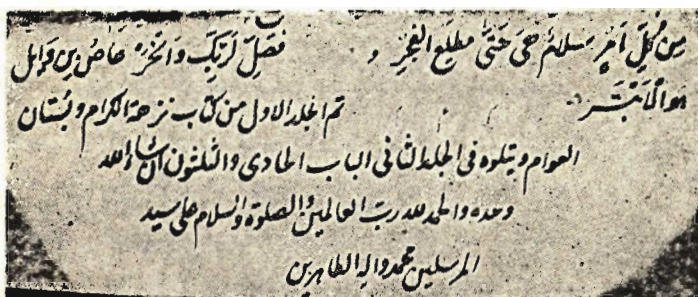 مِن كُلِّ اَمْرٍ سَلامٌ هِیَ حَتّٰی مَطلَعِ الفَجرِ و فَصَلِّ لِرَبِّكَ وَانْحَرْ عاص بن وائل
هوالابتر
تم المجلد الاول من كتاب نزهة الكرام و بُستان
العوام و يتلوه فى المجلد الثانى الباب الحادى والثلثون ان شاء الله
وحده والحمد لله ربّ العالمين والصلوة والسلام على سيد
المرسلين محمد واله الطاهرين